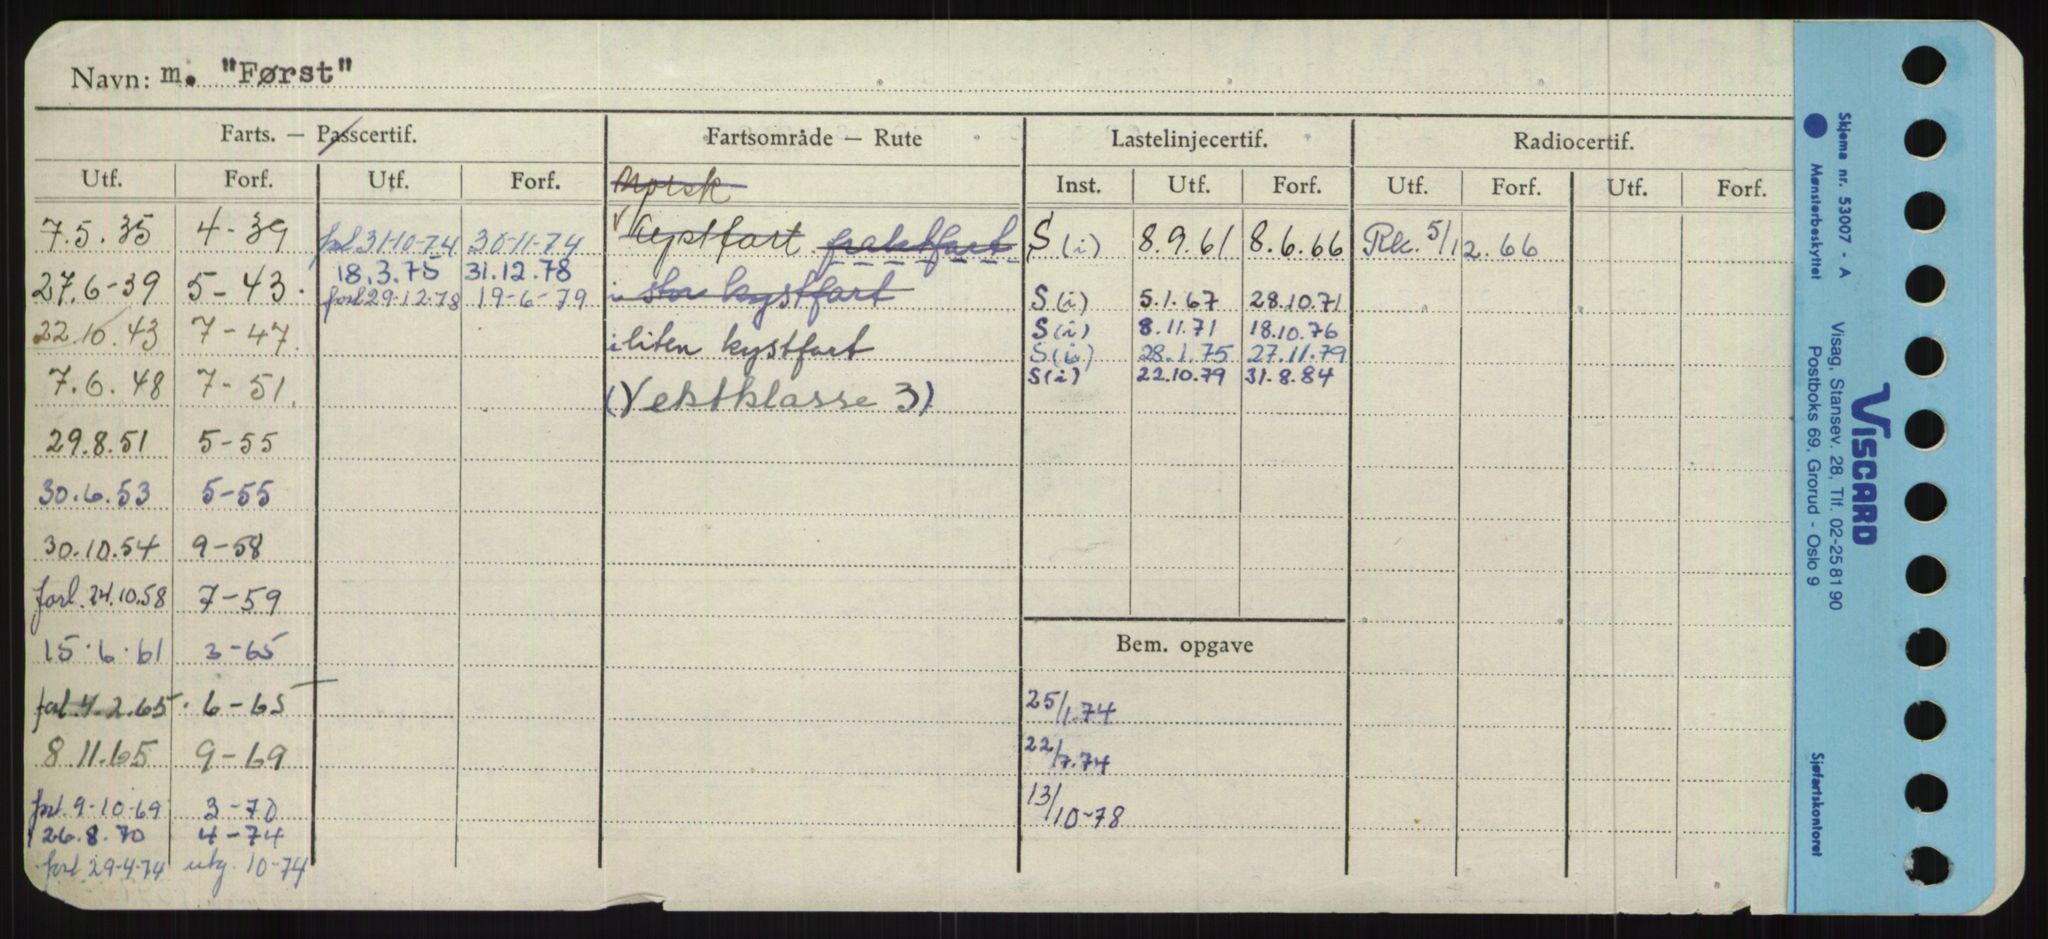 Navn: m. "Først"
Farts. — Passcertif. Fartsområde — Rute Lastelinjecertif. Radiocertif.
Utf. Forf. Utf. Forf. Norsk Inst. Utf. Forf. Utf. Forf. Utf. Forf.
7.5.35 4-39 forl 31-10-74 30-11-74 kystfart fraktfart S (i) 8.9.61 8.6.66 Rk. 5/12.66
18.3.75 31.12.78
27.6-39 5-43. forl 29.12.78 19-6-79 i stor kystfart S (i) 5.1.67 28.10.71
22.10.43 7-47. i liten kystfart S (i) 8.11.71 18.10.76
S (i) 28.1.75 27.11.79
7.6.48 7-51. (Vektklasse 3) S (i) 22.10.79 31.8.84
29.8.51 5-55
30.6.53 5-55
30.10.54 9-58
forl. 24.10.58 7-59
15.6.61 3-65
Bem. opgave
forl. 4.2.65. 6-65 25/1.74
8.11.65 9-69 22/7.74
forl. 9-10-69 3-70 13/10-78
26.8.70 4-74
forl 29-4-74 utg. 10-74
Skjema nr. 53007 - A
Mønsterbeskyttet
Visag, Stansev. 28, Tlf. 02-25 81 90
Postboks 69, Grorud - Oslo 9
VISCARD
Sjøfartskontoret